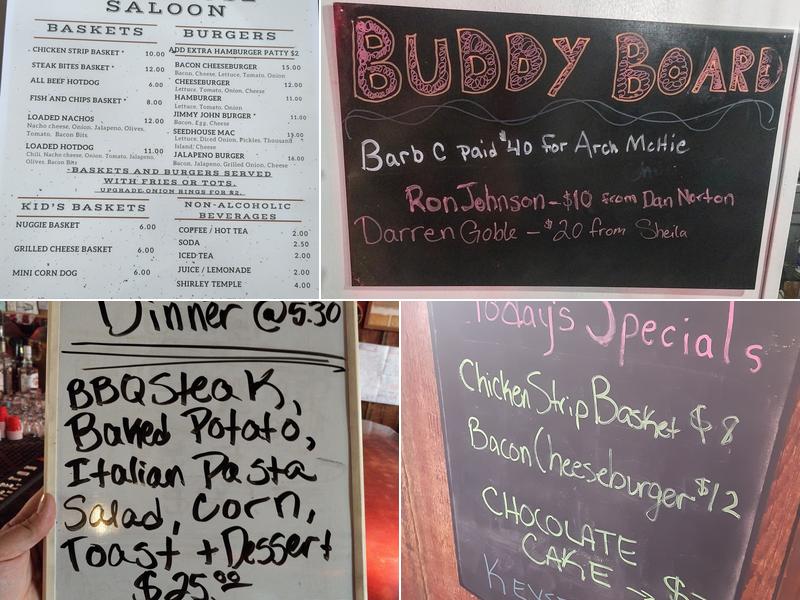 SALOON
BASKETS
CHICKEN STRIP BASKET * 10.00
STEAK BITES BASKET * 12.00
ALL BEEF HOTDOG 6.00
FISH AND CHIPS BASKET * 8.00
LOADED NACHOS 12.00
Nacho cheese, Onion, Jalapeno, Olives,
Tomato, Bacon Bits
LOADED HOTDOG 11.00
Chili, Nacho cheese, Onion, Tomato, Jalapeno,
Olives, Bacon Bits
BURGERS
ADD EXTRA HAMBURGER PATTY $2
BACON CHEESEBURGER 15.00
Bacon, Cheese, Lettuce, Tomato, Onion
CHEESEBURGER 12.00
Lettuce, Tomato, Onion, Cheese
HAMBURGER 11.00
Lettuce, Tomato, Onion
JIMMY JOHN BURGER * 11.00
Bacon, Egg, Cheese
SEEDHOUSE MAC
Lettuce, Diced Onion, Pickles, Thousand
Island, Cheese
JALAPENO BURGER 16.00
Bacon, Jalapeno, Grilled Onion, Cheese
*BASKETS AND BURGERS SERVED
WITH FRIES OR TOTS.
UPGRADE ONION RINGS FOR $2.
KID'S BASKETS
NUGGIE BASKET 6.00
GRILLED CHEESE BASKET 6.00
MINI CORN DOG 6.00
NON-ALCOHOLIC
BEVERAGES
COFFEE / HOT TEA 2.00
SODA 2.50
ICED TEA 2.00
JUICE / LEMONADE 2.00
SHIRLEY TEMPLE 4.00
BUDDY BOARD
Barb C paid $40 for Arch McHie
Ron Johnson - $10 from Dan Norton
Darren Goble - $20 from Sheila
Dinner @5:30
BBQ Steak,
Baked Potato,
Italian Pasta
Salad, Corn,
Toast + Dessert
$25.00
Today's Specials
Chicken Strip Basket $8
Bacon Cheeseburger $12
CHOCOLATE
CAKE → $